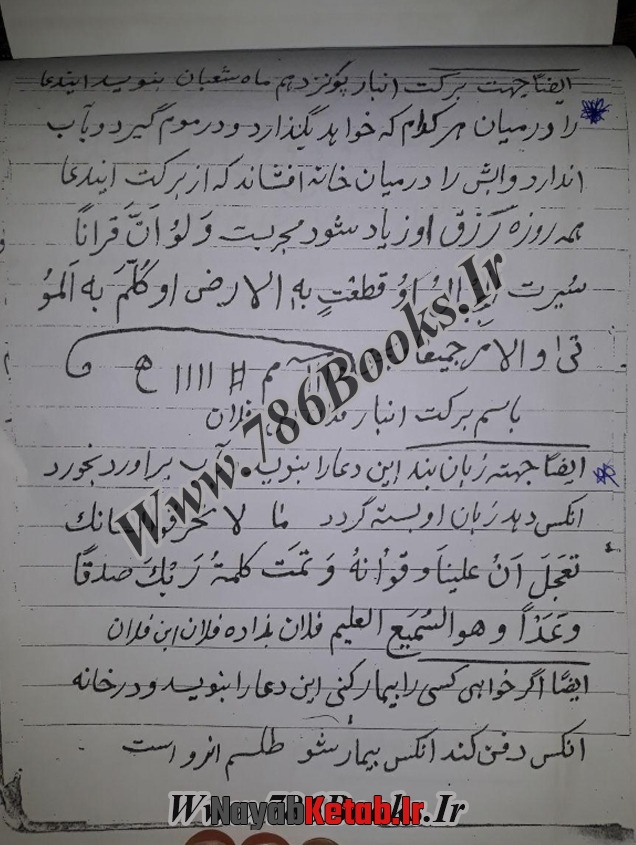 ایضاً جهت برکت انبار پونزدهم ماه شعبان بنویسد ایندعا
را درمیان هر کدام که خواهد بگذارد و درموم گیرد و بآب
اندازد و آبش را درمیان خانه افشاند که از برکت ایندعا
همه روزه رزق او زیاد شود مجربست وَلَوْ اَنَّ قراناً
سُیرت اَوُ قطعْتٍ بِهِ الارض او کُلَّمَ بِه اَلمُو
تی او الامر جمیعاً
باسم برکت انبار فلان
ایضاً جهته زبان بند این دعا را بنویسد بآب براورد بخورد
انکس دهد زبان او بسته گردد لا تحرک
تعجل اَنُ علیناَ و قرانهُ وَ تمَت کلمةُ رَبُّكَ صدقاً
وَ عَدْاً وهو السُمیَع العلیم فلان بزاده فلان ابن فلان
ایضًا اگر خواهی کسی را بیمار کنی این دعا را بنویسد و در خانه
انکس دفن کند انکس بیمار شو طلسم انرو است
Www.786Books.Ir
Www.786Books.Ir
NayabKetab.Ir